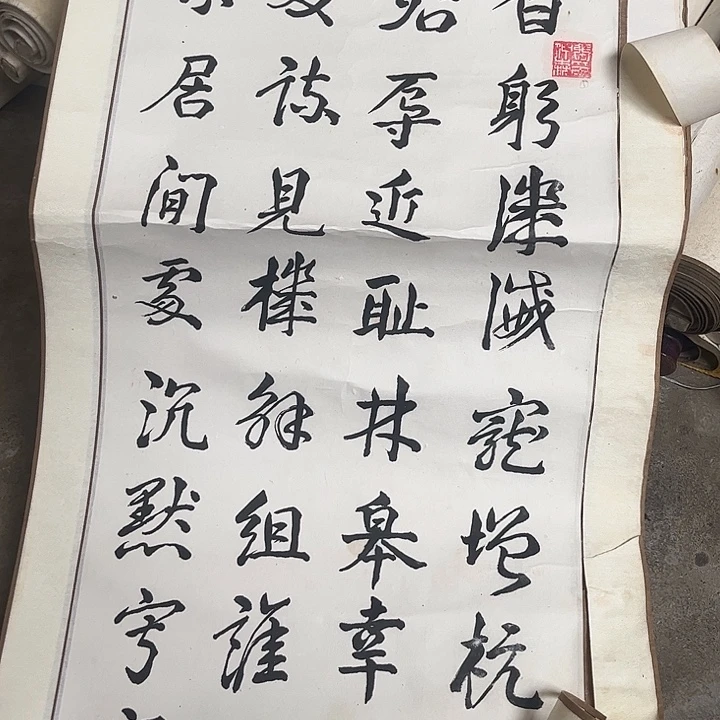 省躬譏誡寵增抗
殆辱近耻林皋幸
疏見機解組誰
索居閒處沉默寂